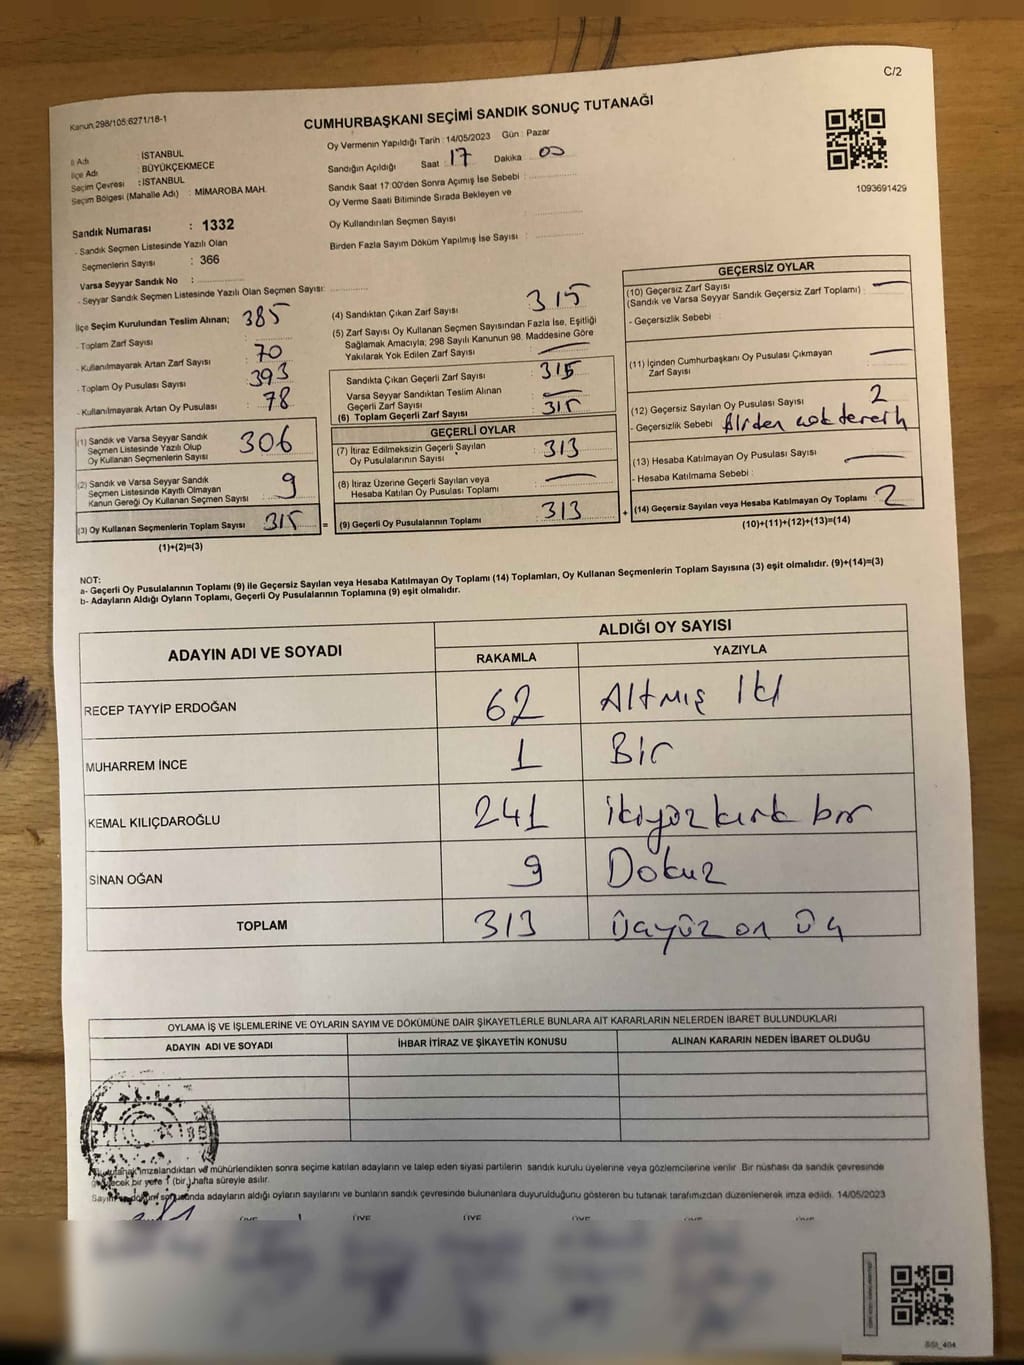 C/2
Kanun 298/105;6271/18-1
CUMHURBAŞKANI SEÇİMİ SANDIK SONUÇ TUTANAĞI
İl Adı : İSTANBUL
İlçe Adı : BÜYÜKÇEKMECE
Seçim Çevresi : İSTANBUL
Seçim Bölgesi (Mahalle Adı) : MİMAROBA MAH.
Sandık Numarası : 1332
- Sandık Seçmen Listesinde Yazılı Olan
Seçmenlerin Sayısı : 366
Varsa Seyyar Sandık No :
- Seyyar Sandık Seçmen Listesinde Yazılı Olan Seçmen Sayısı:
Oy Vermenin Yapıldığı Tarih : 14/05/2023 Gün : Pazar
Sandığın Açıldığı Saat : 17 Dakika 00
Sandık Saat 17:00'den Sonra Açımış İse Sebebi :
Oy Verme Saati Bitiminde Sırada Bekleyen ve
Oy Kullandırılan Seçmen Sayısı :
Birden Fazla Sayım Döküm Yapılmış İse Sayısı :
1093691429
İlçe Seçim Kurulundan Teslim Alınan;
- Toplam Zarf Sayısı : 385
- Kullanılmayarak Artan Zarf Sayısı : 70
- Toplam Oy Pusulası Sayısı : 393
- Kullanılmayarak Artan Oy Pusulası : 78
(1) Sandık ve Varsa Seyyar Sandık
Seçmen Listesinde Yazılı Olup
Oy Kullanan Seçmenlerin Sayısı 306
(2) Sandık ve Varsa Seyyar Sandık
Seçmen Listesinde Kayıtlı Olmayan
Kanun Gereği Oy Kullanan Seçmen Sayısı 9
(3) Oy Kullanan Seçmenlerin Toplam Sayısı 315 =
(1)+(2)=(3)
(4) Sandıktan Çıkan Zarf Sayısı 315
(5) Zarf Sayısı Oy Kullanan Seçmen Sayısından Fazla İse, Eşitliği
Sağlamak Amacıyla; 298 Sayılı Kanunun 98. Maddesine Göre
Yakılarak Yok Edilen Zarf Sayısı
Sandıkta Çıkan Geçerli Zarf Sayısı 315
Varsa Seyyar Sandıktan Teslim Alınan
Geçerli Zarf Sayısı
(6) Toplam Geçerli Zarf Sayısı 315
GEÇERLİ OYLAR
(7) İtiraz Edilmeksizin Geçerli Sayılan
Oy Pusulalarının Sayısı 313
(8) İtiraz Üzerine Geçerli Sayılan veya
Hesaba Katılan Oy Pusulası Toplamı
(9) Geçerli Oy Pusulalarının Toplamı 313 +
GEÇERSİZ OYLAR
(10) Geçersiz Zarf Sayısı
(Sandık ve Varsa Seyyar Sandık Geçersiz Zarf Toplamı) :
- Geçersizlik Sebebi :
(11) İçinden Cumhurbaşkanı Oy Pusulası Çıkmayan
Zarf Sayısı
(12) Geçersiz Sayılan Oy Pusulası Sayısı 2
- Geçersizlik Sebebi Birden çok tercih
(13) Hesaba Katılmayan Oy Pusulası Sayısı
- Hesaba Katılmama Sebebi :
(14) Geçersiz Sayılan veya Hesaba Katılmayan Oy Toplamı 2
(10)+(11)+(12)+(13)=(14)
NOT:
a- Geçerli Oy Pusulalarının Toplamı (9) ile Geçersiz Sayılan veya Hesaba Katılmayan Oy Toplamı (14) Toplamları, Oy Kullanan Seçmenlerin Toplam Sayısına (3) eşit olmalıdır. (9)+(14)=(3)
b- Adayların Aldığı Oyların Toplamı, Geçerli Oy Pusulalarının Toplamına (9) eşit olmalıdır.
ADAYIN ADI VE SOYADI
ALDIĞI OY SAYISI
RAKAMLA YAZIYLA
RECEP TAYYİP ERDOĞAN 62 Altmış İki
MUHARREM İNCE 1 Bir
KEMAL KILIÇDAROĞLU 241 ikiyüz kırk bir
SİNAN OĞAN 9 Dokuz
TOPLAM 313 Üçyüz on üç
OYLAMA İŞ VE İŞLEMLERİNE VE OYLARIN SAYIM VE DÖKÜMÜNE DAİR ŞİKAYETLERLE BUNLARA AİT KARARLARIN NELERDEN İBARET BULUNDUKLARI
ADAYIN ADI VE SOYADI İHBAR İTİRAZ VE ŞİKAYETİN KONUSU ALINAN KARARIN NEDEN İBARET OLDUĞU
tutanak imzalandıktan ve mühürlendikten sonra seçime katılan adayların ve talep eden siyasi partilerin sandık kurulu üyelerine veya gözlemcilerine verilir. Bir nüshası da sandık çevresinde
bir yere 1 (bir) hafta süreyle asılır.
sonunda adayların aldığı oyların sayılarını ve bunların sandık çevresinde bulunanlara duyurulduğunu gösteren bu tutanak tarafımızdan düzenlenerek imza edildi. 14/05/2023
ÜYE ÜYE ÜYE ÜYE ÜYE ÜYE